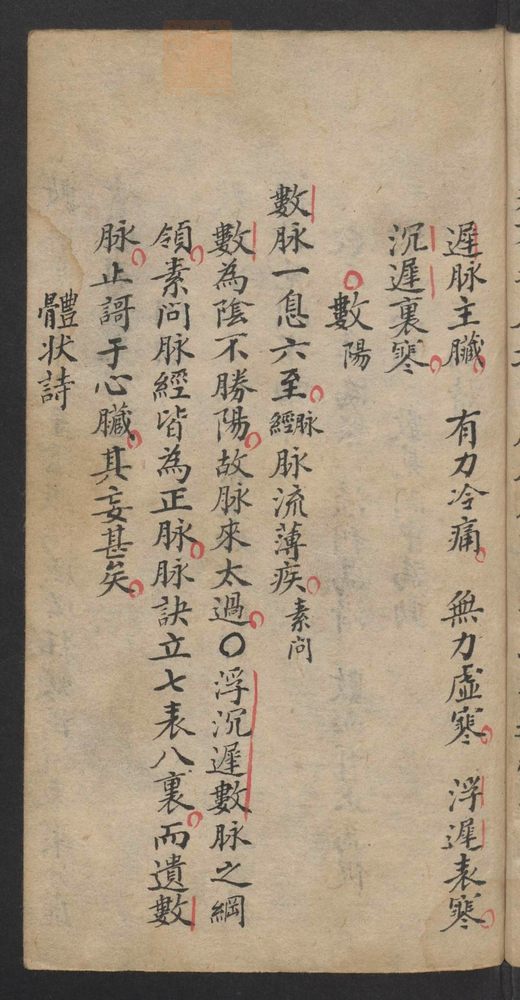 遲脉主臟 有力冷痛 無力虛寒 浮遲表寒
沉遲裏寒
數陽
數脉一息六至脉經脉流薄疾素问
數為陰不勝陽故脉來太過〇浮沉遲數脉之綱
領素问脉經皆為正脉脉訣立七表八裏而遺數
脉止謌于心臟其妄甚矣
體状詩